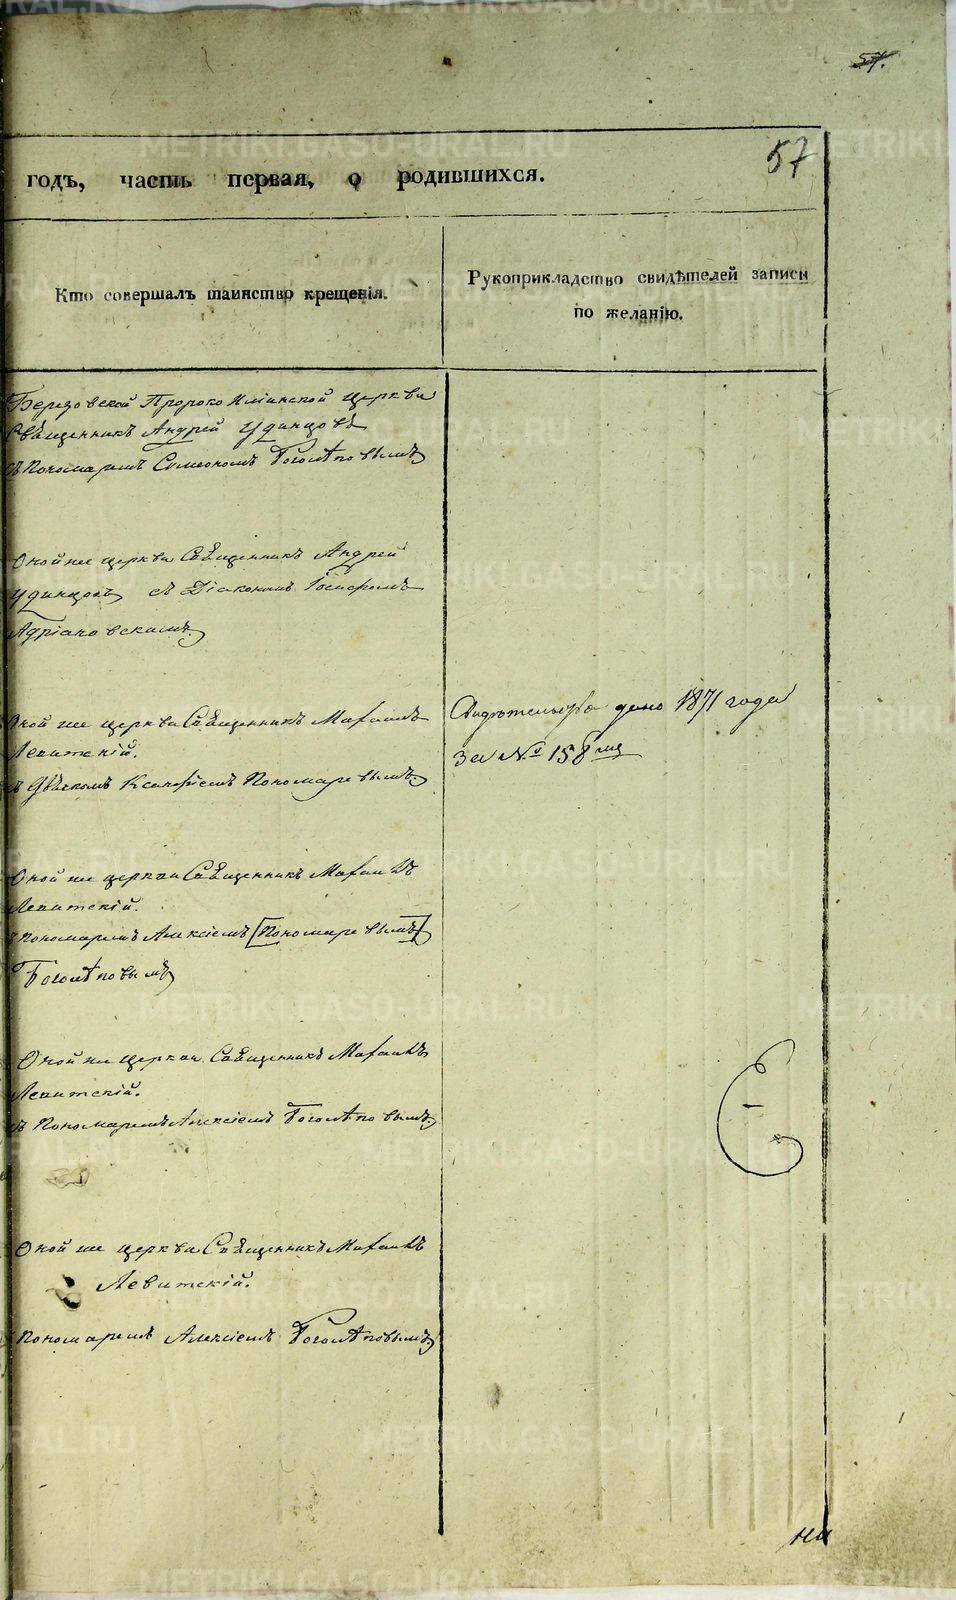 57.
57
годъ, часть первая, о родившихся.
Кто совершалъ таинство крещенія.
Рукоприкладство свидѣтелей записи
по желанію.
Березовской Пророко Илiинской церкви
Священникъ Андрей Удинцовъ
съ Пономаремъ Симеономъ Боголѣповымъ
Оной же церкви Священникъ Андрей
Удинцовъ съ Дiакономъ Iосифомъ
Адрiановскимъ.
Оной же церкви Священникъ Михаилъ
Левитскiй.
съ Дьячкомъ Ксенофонтомъ Пономаревымъ.
Свидѣтельство дано 1871 года
за № 158
Оной же церкви Священникъ Михаилъ
Левитскiй.
съ Пономаремъ Алексiемъ [Пономаревымъ]
Боголѣповымъ
Оной же церкви Священникъ Михаилъ
Левитскiй.
съ Пономаремъ Алексiемъ Боголѣповымъ.
Оной же церкви Священникъ Михаилъ
Левитскiй.
Пономаремъ Алексiемъ Боголѣповымъ
METRIKI.GASO-URAL.RU